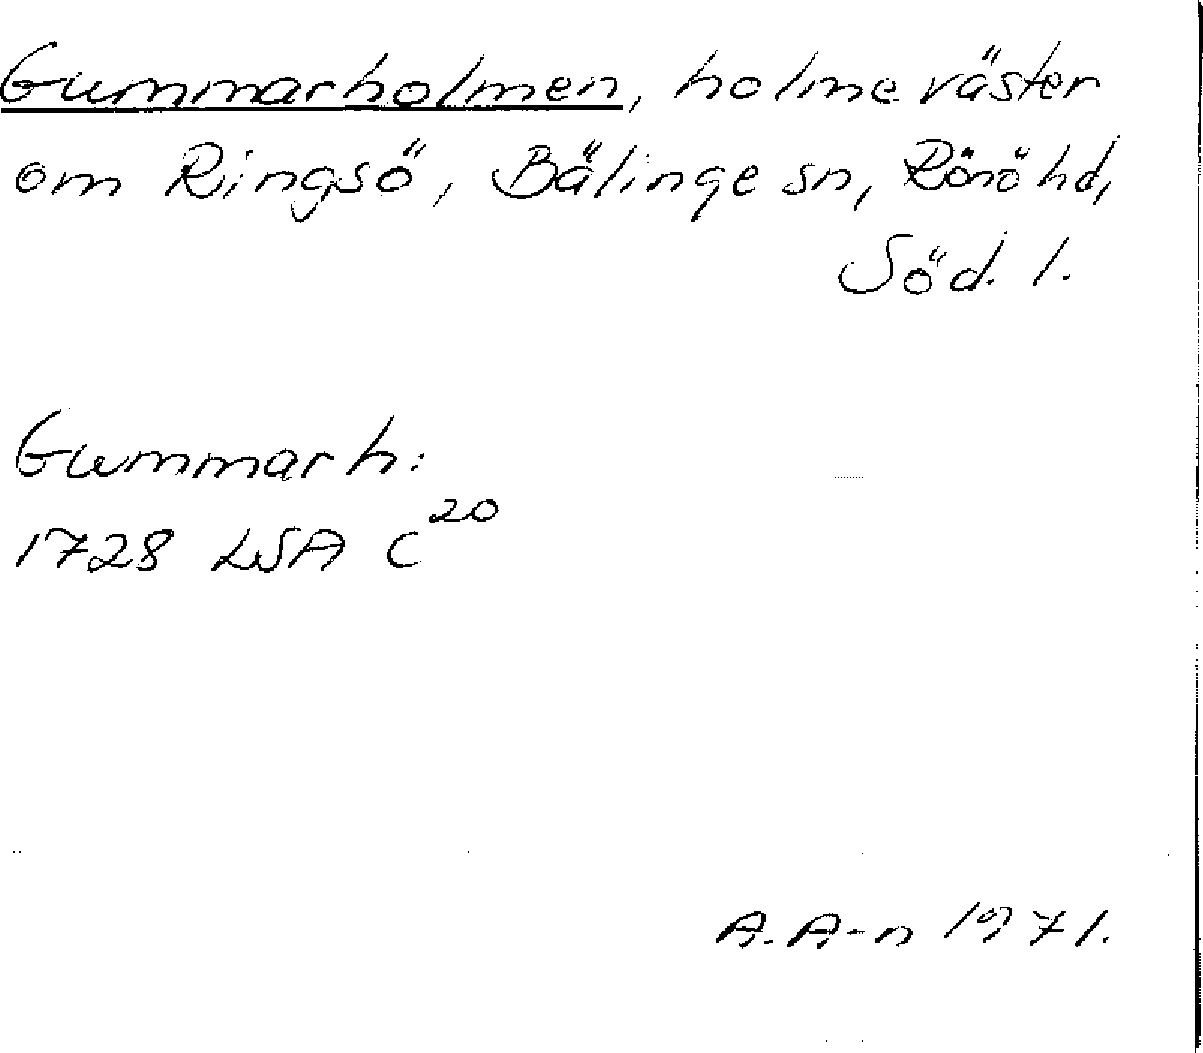 Gummarholmen, holme väster
om Ringsö, Bälinge sn, Rönö hd,
Söd. l.
Gummarh:
1728 LSA C20
A. A-n 1971.